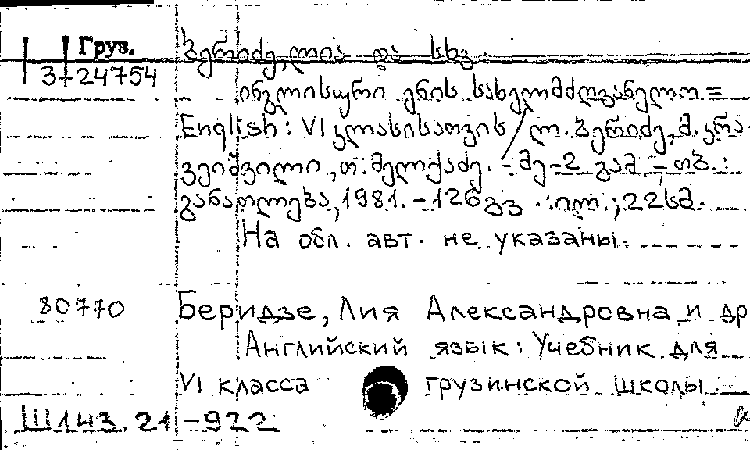 Груз.
3-24754
ბერიძე, ლია და სხვ.
ინგლისური ენის სახელმძღვანელო =
English: VI კლასისათვის / ლ. ბერიძე, მ. კრა-
ვეიშვილი, თ. მელქაძე. - მე-2 გამ. - თბ.:
განათლება, 1981. - 126 გვ. : ილ.; 22 სმ.
На обл. авт. не указаны.
80770
Беридзе, Лия Александровна и др
Английский язык: Учебник для
VI класса грузинской школы
Ш143.21-922